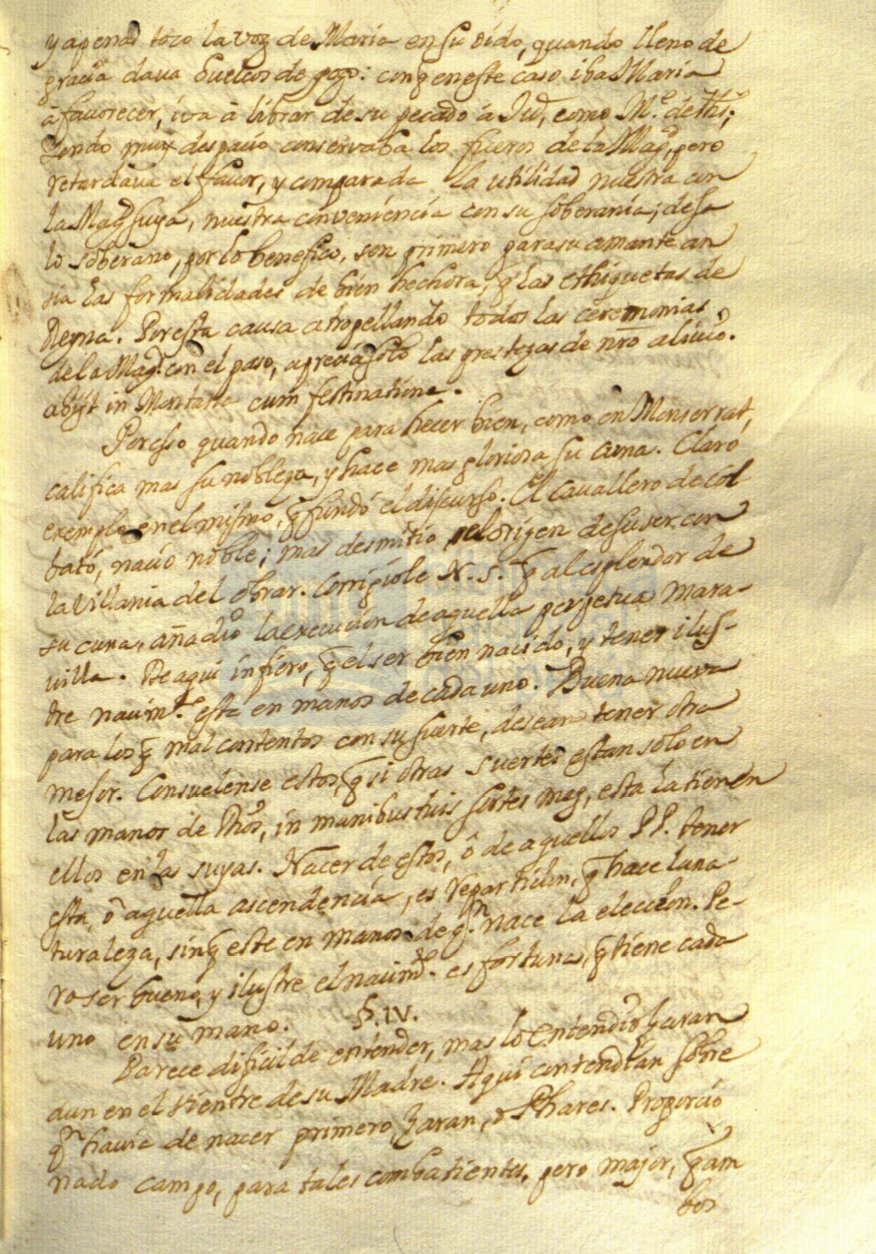 y apenas toco la voz de Maria en su oido, quando lleno de
gracia dava buelcos de gozo: con q en este caso iba Maria
á favorecer, iva á librar de su pecado á Jua, como M.e de Xhs;
yendo muy despacio conservaba los fueros de la Mag.d, pero
retardava el favor, y comparada la utilidad nuestra con
la Mag.d suya, nuestra conveniencia con su soberania; desa
lo soberano, por lo benefico, son primero para su amante an
sia las formalidades de bien hechora, q las ethiquetas de
Reyna. Por esta causa atropellando todas las ceremonias
de la Mag.d con el paso, aprecia solo las prestezas de nro alivio.
abijt in Montana cum festinatione.
Por esso quando nace para hecer bien, como en Monserrat,
califica mas su nobleza, y hace mas gloriosa su cuna. Claro
exemplo en el mismo, q fundó el discurso. El cavallero de Col
bató, nació noble; mas desmitio el origen de su ser con
la villania del obrar. Corrigiole N. S. q al esplendor de
su cuna, añadio la execucion de aquella perpetua mara-
villa. De aqui infiero, q el ser bien nacido, y tener ilus-
tre nacim.to esta en manos de cada uno. Buena nueva
para los q mal contentos con su suerte, desean tener otra
mejor. Consuelense estos, q si otras suertes estan solo en
las manos de Dios, in manibus tuis sortes meę, esta la tienen
ellos en las suyas. Nacer de estos, ó de aquellos PP. tener
esta, ó aquella ascendencia, es reparticion, q hace la na-
turaleza, sin q este en manos de q.n nace la eleccion. Pe-
ro ser bueno, y ilustre el nacim.to es fortuna, q tiene cada
uno en su mano. §. IV.
Parece dificil de entender, mas lo entendió Zaran
aun en el vientre de su Madre. Aqui contendian sobre
q.n havia de nacer primero, Zaran, o Phares. Proporcio
nado campo, para tales combatientes, pero major, q am
bos